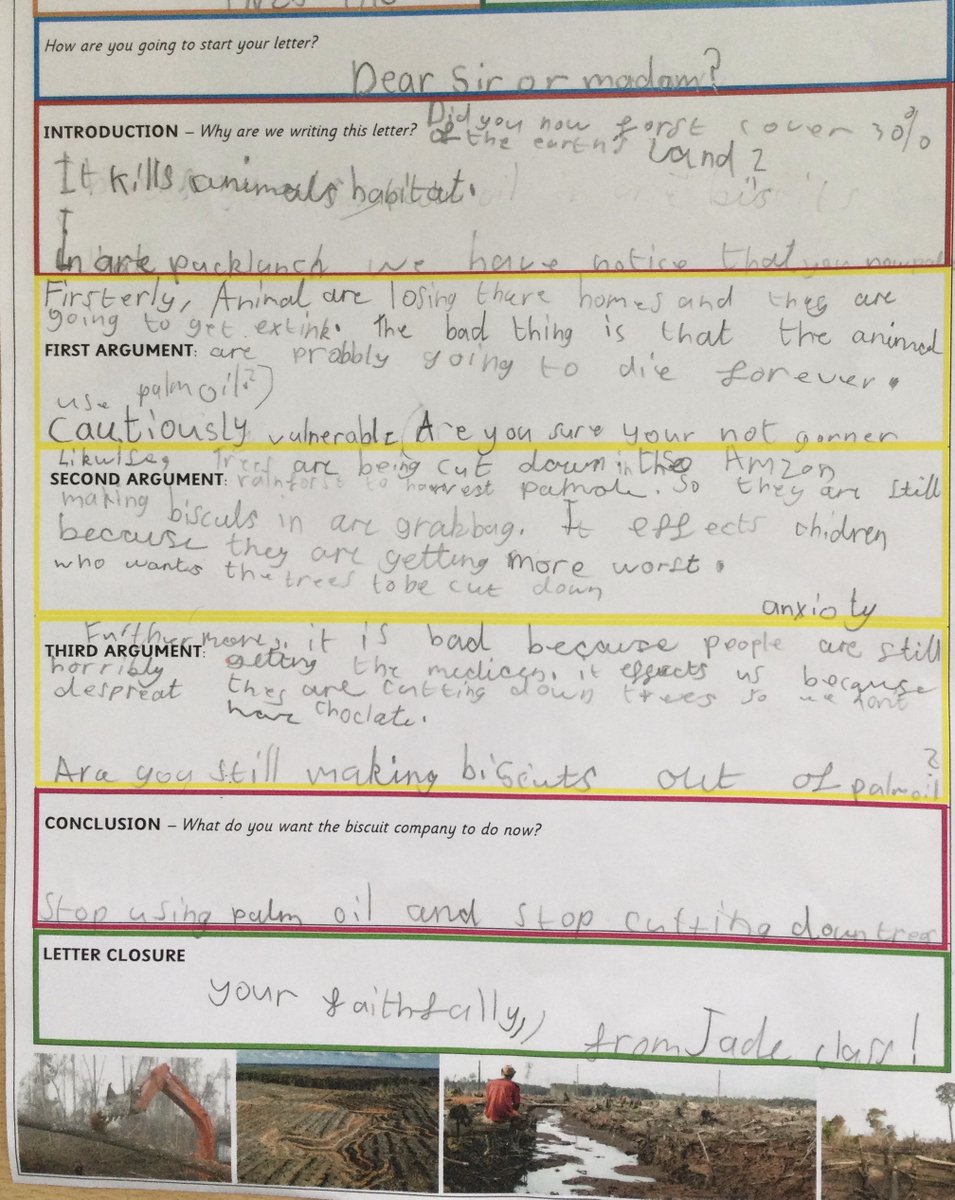 How are you going to start your letter?
Dear Sir or madam?
INTRODUCTION – Why are we writing this letter? Did you now forst cover 30%
of the earths Land ?
It kills animals habitat.
I
In are packlunch we have notice that you now
Firsterly, Animal are losing there homes and they are
going to get extink. The bad thing is that the animal
FIRST ARGUMENT: are probbly going to die forever.
use palmoil?)
Cautiously vulnerable (Are you sure your not gonner
Likwise, Trees are being cut down in the Amzon
SECOND ARGUMENT: rainforst to harvest pamole. So they are still
making biscuts in are grabbag. It effects chidren
because they are getting more worst.
who wantes the trees to be cut down
anxioty
Furthermore, it is bad because people are still
THIRD ARGUMENT:
horribly getting the medicen. it effects us because
despreat they are cutting down trees so we
have choclate.
Are you still making biscuts out of palmoil?
CONCLUSION – What do you want the biscuit company to do now?
Stop using palm oil and stop cutting down trees
LETTER CLOSURE
your faithfally,,
from Jade class!